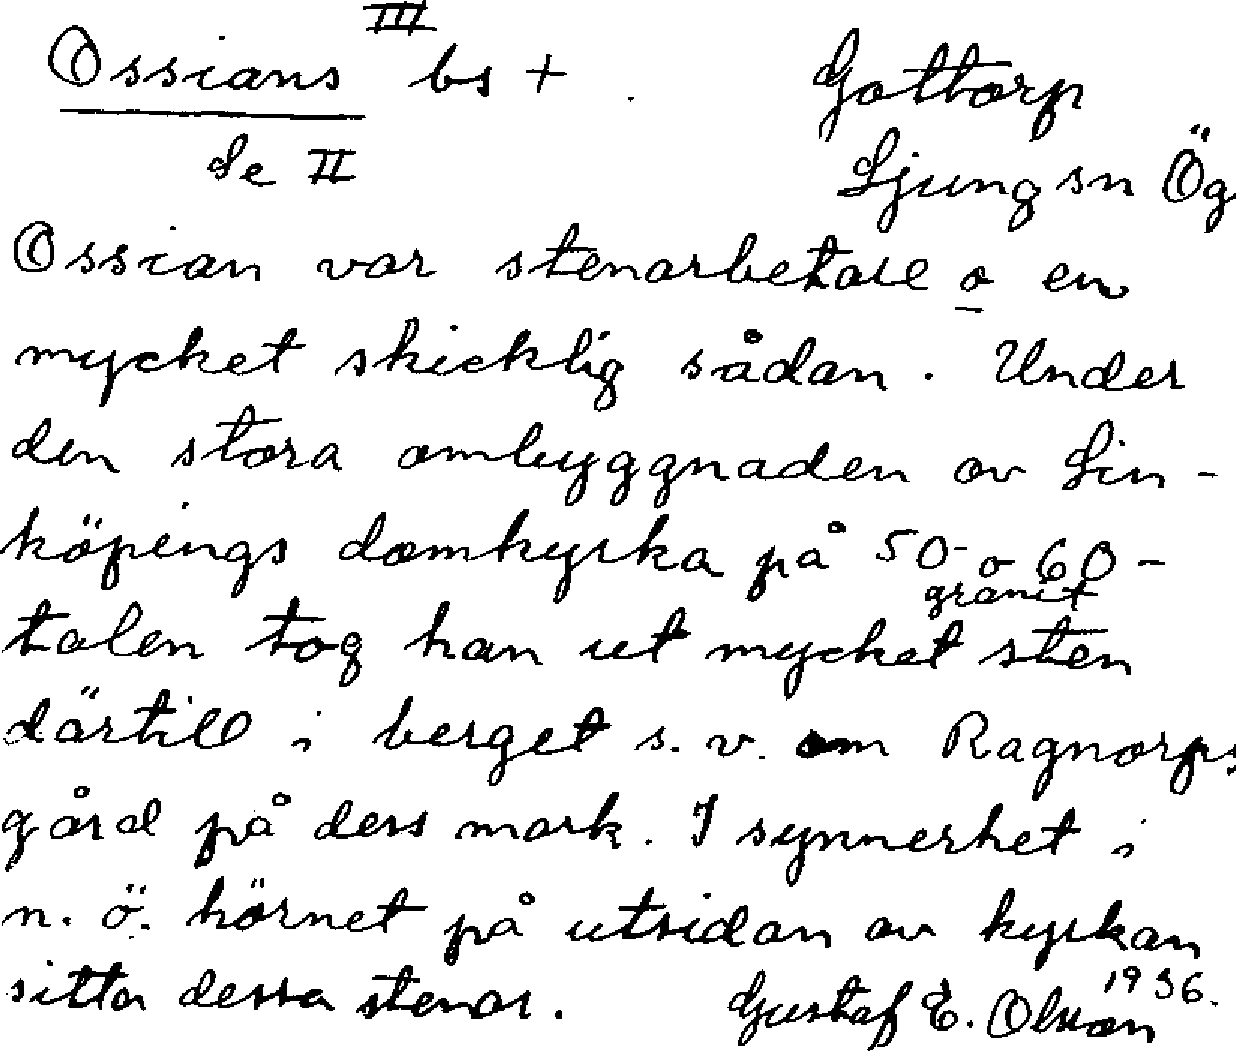 Ossians III bs +
Gottorp
Se II
Ljung sn Ög
Ossian var stenarbetare o en
mycket skicklig sådan. Under
den stora ombyggnaden av Lin-
köpings domkyrka på 50- o 60-
granit
talen tog han ut mycket sten
därtill i berget s. v. om Ragnorps
gård på dess mark. I synnerhet i
n. ö. hörnet på utsidan av kyrkan
sitta dessa stenar.
Gustaf E. Olsson 1936.